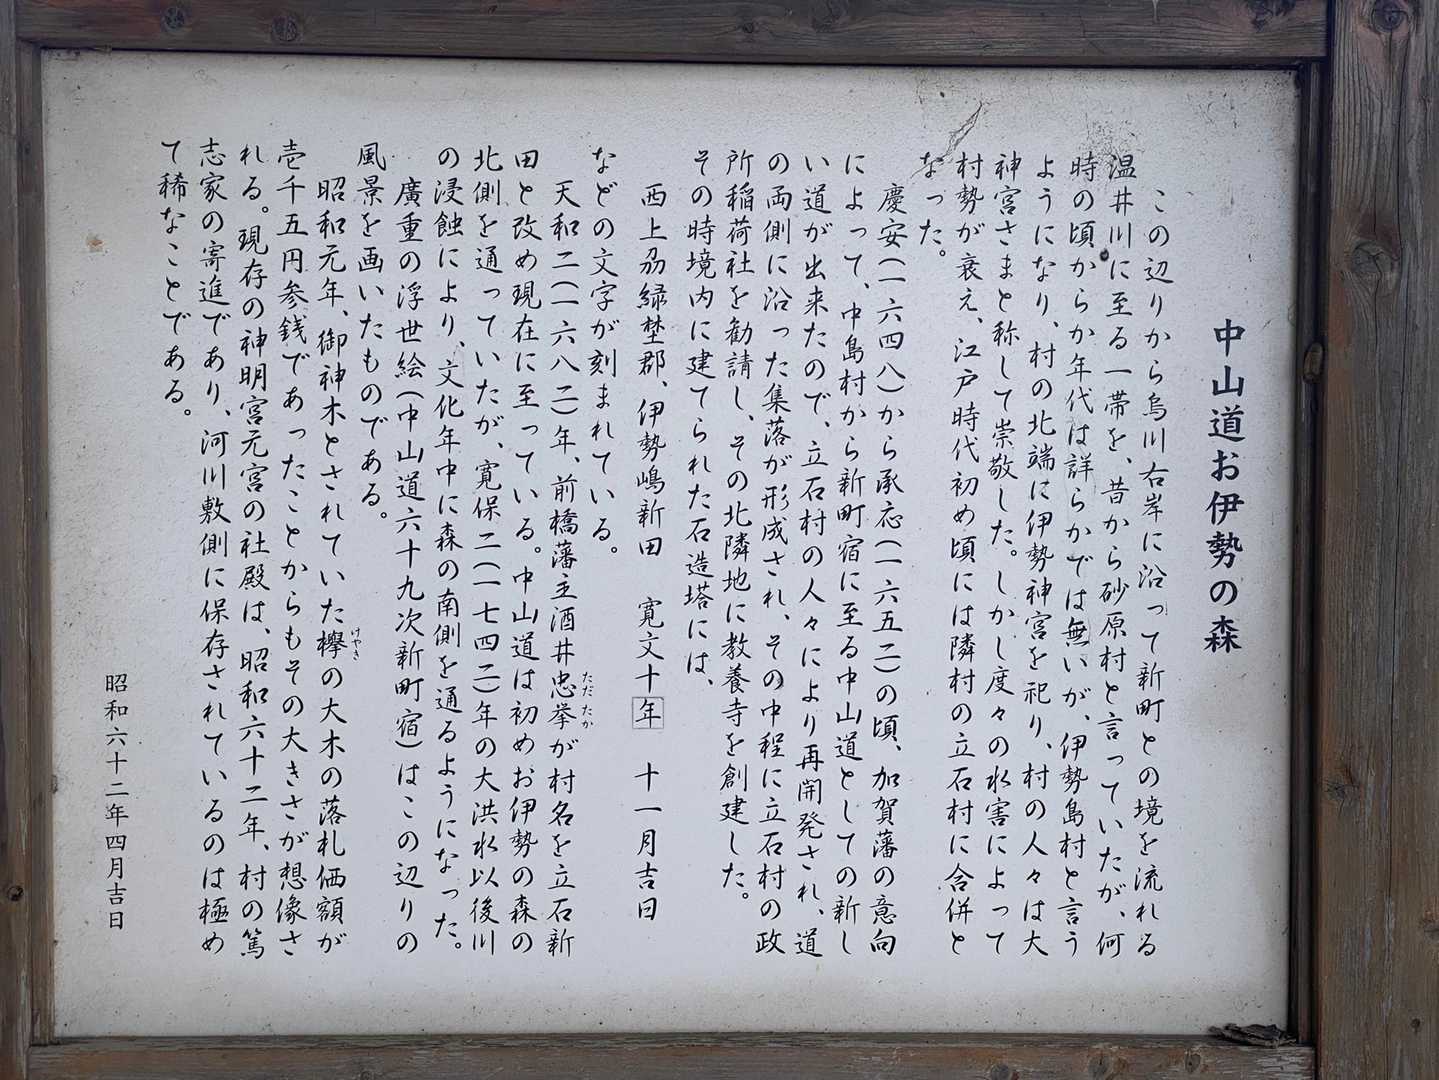 中山道お伊勢の森
この辺りから烏川右岸に沿って新町との境を流れる
温井川に至る一帯を、昔から砂原村と言っていたが、何
時の頃からか年代は詳らかでは無いが、伊勢島村と言う
ようになり、村の北端に伊勢神宮を祀り、村の人々は大
神宮さまと称して崇敬した。しかし度々の水害によって
村勢が衰え、江戸時代初め頃には隣村の立石村に含併と
なった。
慶安(一六四八)から承応(一六五二)の頃、加賀藩の意向
によって、中島村から新町宿に至る中山道としての新し
い道が出来たので、立石村の人々により再開発され、道
の両側に沿った集落が形成され、その中程に立石村の政
所稲荷社を勧請し、その北隣地に教養寺を創建した。
その時境内に建てられた石造塔には、
西上刕緑埜郡、伊勢嶋新田 寛文十年 十一月吉日
などの文字が刻まれている。
天和二(一六八二)年、前橋藩主酒井忠挙が村名を立石新
ただたか
田と改め現在に至っている。中山道は初めお伊勢の森の
北側を通っていたが、寛保二(一七四二)年の大洪水以後川
の浸蝕により、文化年中に森の南側を通るようになった。
廣重の浮世絵(中山道六十九次新町宿)はこの辺りの
風景を画いたものである。
昭和元年、御神木とされていた欅の大木の落札価額が
けやき
壱千五円参銭であったことからもその大きさが想像さ
れる。現存の神明宮元宮の社殿は、昭和六十二年、村の篤
志家の寄進であり、河川敷側に保存されているのは極め
て稀なことである。
昭和六十二年四月吉日